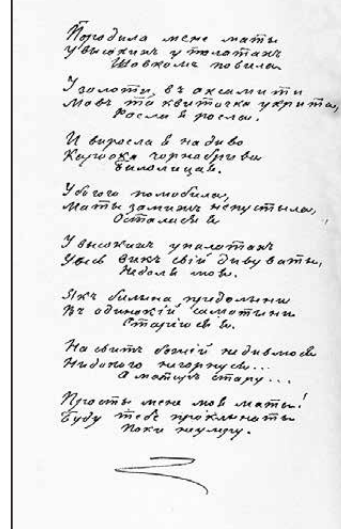 Породила мене маты
У высокихъ у полатахъ
Шовкомъ повила.
У золоти, въ аксамити
Мовъ та квиточка укрита,
Росла я росла.
И виросла я на диво
Кароока чорнобрива
Билолицая.
Убогого полюбила,
Маты замижъ непустыла,
Осталася я
У высокихъ уполатахъ
Увесь викъ свій дивуваты,
Недоля моя.
Якъ былина придолыни
Въ одинокій самотыни
Старіюся я.
На свитъ божій недивлюся
Нидокого негорнуся...
А матіръ стару...
Просты мене моя маты!
Буду тебе проклынаты
Поки неумру.